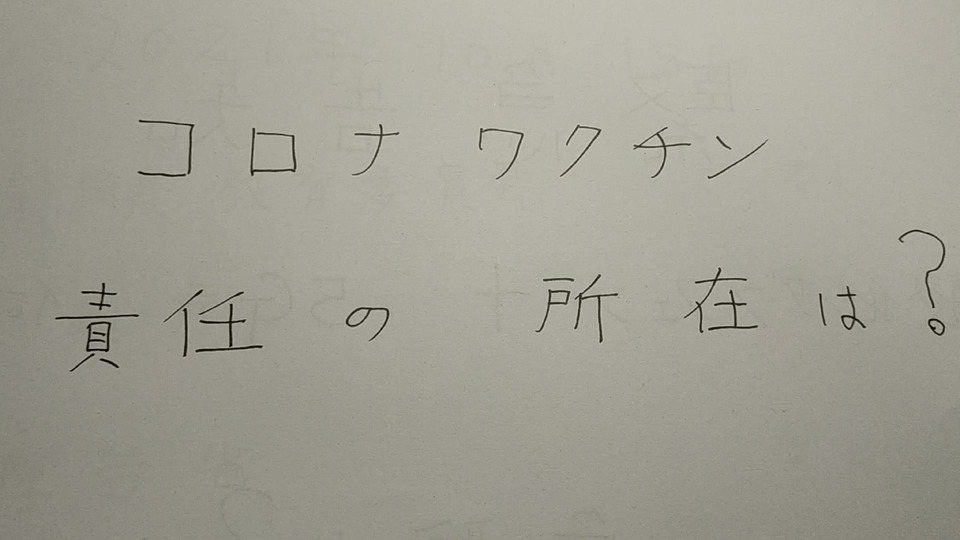 コロナワクチン
責任の所在は?